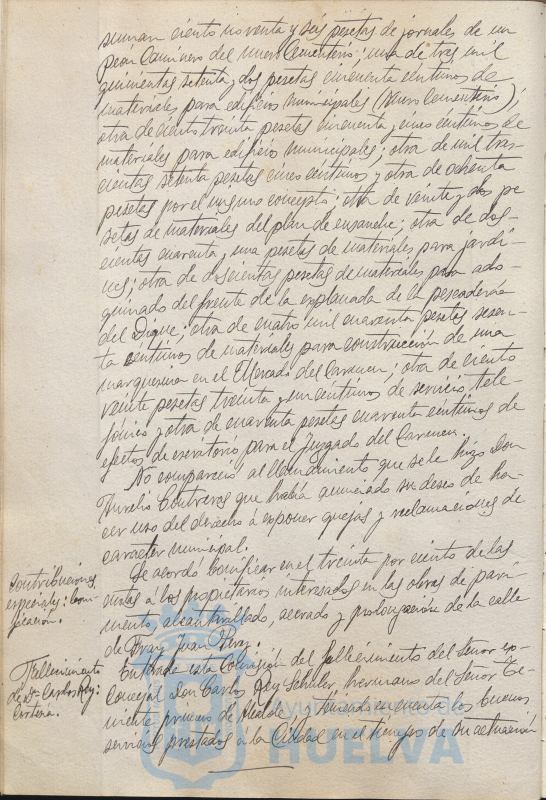 suman ciento noventa y seis pesetas de jornales de un
peón Caminero del nuevo Cementerio; una de tres mil
quinientas setenta y dos pesetas cincuenta céntimos de
materiales para edificios municipales (Nuevo Cementerio);
otra de ciento treinta pesetas cincuenta y cinco céntimos de
materiales para edificios municipales; otra de mil tres-
cientas setenta pesetas cinco céntimos y otra de ochenta
pesetas por el mismo concepto; otra de veinte y dos pe
setas de materiales del plan de ensanche; otra de dos-
cientas cuarenta y una pesetas de materiales para jardi-
nes; otra de doscientas pesetas de materiales para ado-
quinado del frente de la explanada de la pescadería
del Dique; otra de cuatro mil cuarenta pesetas sesen-
ta céntimos de materiales para construcción de una
marquesina en el Mercado del Carmen; otra de ciento
veinte pesetas treinta y un céntimos de servicio tele-
fónico y otra de cuarenta pesetas cuarenta céntimos de
efectos de escritorio para el Juzgado del Carmen.
No compareció al llamamiento que se le hizo Don
Aurelio Contreras que había anunciado su deseo de ha-
cer uso del derecho á exponer quejas y reclamaciones de
carácter municipal.
Contribuciones
especiales: boni-
ficación.
Se acordó bonificar en el treinta por ciento de las
cuotas á los propietarios interesados en las obras de pavi-
mento, alcantarillado, acerado y prolongación de la calle
de Fray Juan Pérez.
Fallecimiento
de Dn Carlos Rey:
Enterada esta Comisión del fallecimiento del Señor ex-
concejal Don Carlos Rey Schuler, hermano del Señor Te-
niente primero de Alcalde, y teniendo en cuenta los buenos
servicios prestados á la Ciudad en el tiempo de su actuación
Ayuntamiento de
HUELVA